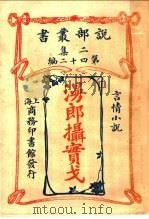 說部叢書
二集
第四十二編
言情小說
上海
商務印書館發行